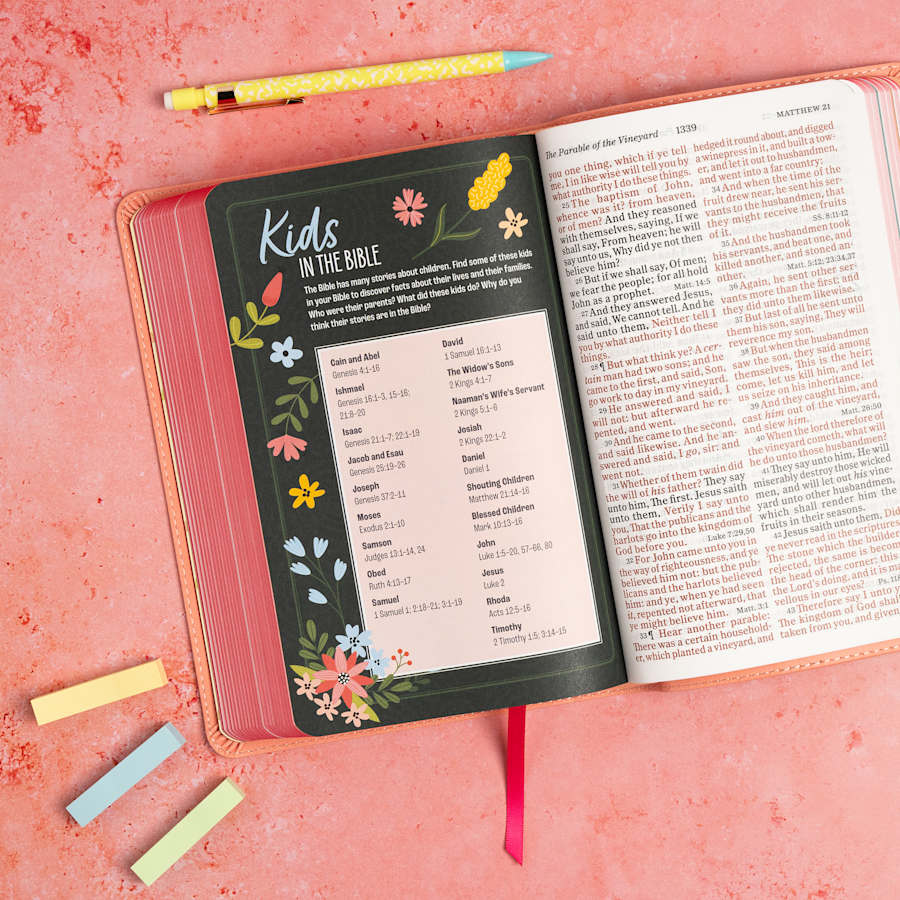 Kids
IN THE BIBLE
The Bible has many stories about children. Find some of these kids
in your Bible to discover facts about their lives and their families.
Who were their parents? What did these kids do? Why do you
think their stories are in the Bible?
Cain and Abel
Genesis 4:1-16
Ishmael
Genesis 16:1-3, 15-16;
21:8-20
Isaac
Genesis 21:1-7; 22:1-19
Jacob and Esau
Genesis 25:19-26
Joseph
Genesis 37:2-11
Moses
Exodus 2:1-10
Samson
Judges 13:1-14, 24
Obed
Ruth 4:13-17
Samuel
1 Samuel 1; 2:18-21; 3:1-19
David
1 Samuel 16:1-13
The Widow's Sons
2 Kings 4:1-7
Naaman's Wife's Servant
2 Kings 5:1-6
Josiah
2 Kings 22:1-2
Daniel
Daniel 1
Shouting Children
Matthew 21:14-16
Blessed Children
Mark 10:13-16
John
Luke 1:5-20, 57-66, 80
Jesus
Luke 2
Rhoda
Acts 12:5-16
Timothy
2 Timothy 1:5; 3:14-15
The Parable of the Vineyard 1339 MATTHEW 21
you one thing, which if ye tell
me, I in like wise will tell you by
what authority I do these things.
25 The baptism of John,
whence was it? from heaven,
or of men? And they reasoned
with themselves, saying, If we
shall say, From heaven; he will
say unto us, Why did ye not then
believe him?
26 But if we shall say, Of men;
we fear the people; for all hold
John as a prophet. Matt. 14:5
27 And they answered Jesus,
and said, We cannot tell. And he
said unto them, Neither tell I
you by what authority I do these
things.
28 ¶ But what think ye? A cer-
tain man had two sons; and he
came to the first, and said, Son,
go work to day in my vineyard.
29 He answered and said, I
will not: but afterward he re-
pented, and went.
30 And he came to the second,
and said likewise. And he an-
swered and said, I go, sir: and
went not.
31 Whether of them twain did
the will of his father? They say
unto him, The first. Jesus saith
unto them, Verily I say unto
you, That the publicans and the
harlots go into the kingdom of
God before you. Luke 7:29,50
32 For John came unto you in
the way of righteousness, and ye
believed him not: but the pub-
licans and the harlots believed
him: and ye, when ye had seen
it, repented not afterward, that
ye might believe him. Matt. 3:1
33 ¶ Hear another parable:
There was a certain household-
er, which planted a vineyard, and
hedged it round about, and digged
a winepress in it, and built a tow-
er, and let it out to husbandmen,
and went into a far country:
34 And when the time of the
fruit drew near, he sent his ser-
vants to the husbandmen, that
they might receive the fruits
of it. SS. 8:11-12
35 And the husbandmen took
his servants, and beat one, and
killed another, and stoned an-
other. Matt. 5:12; 23:34,37
36 Again, he sent other ser-
vants more than the first: and
they did unto them likewise.
37 But last of all he sent unto
them his son, saying, They will
reverence my son.
38 But when the husbandmen
saw the son, they said among
themselves, This is the heir;
come, let us kill him, and let
us seize on his inheritance.
39 And they caught him, and
cast him out of the vineyard,
and slew him. Matt. 26:50
40 When the lord therefore of
the vineyard cometh, what will
he do unto those husbandmen?
41 They say unto him, He will
miserably destroy those wicked
men, and will let out his vine-
yard unto other husbandmen,
which shall render him the
fruits in their seasons.
42 Jesus saith unto them, Did
ye never read in the scriptures,
The stone which the builders
rejected, the same is become
the head of the corner: this is
the Lord's doing, and it is mar
vellous in our eyes? Ps. 118
43 Therefore say I unto you,
The kingdom of God shall
taken from you, and given